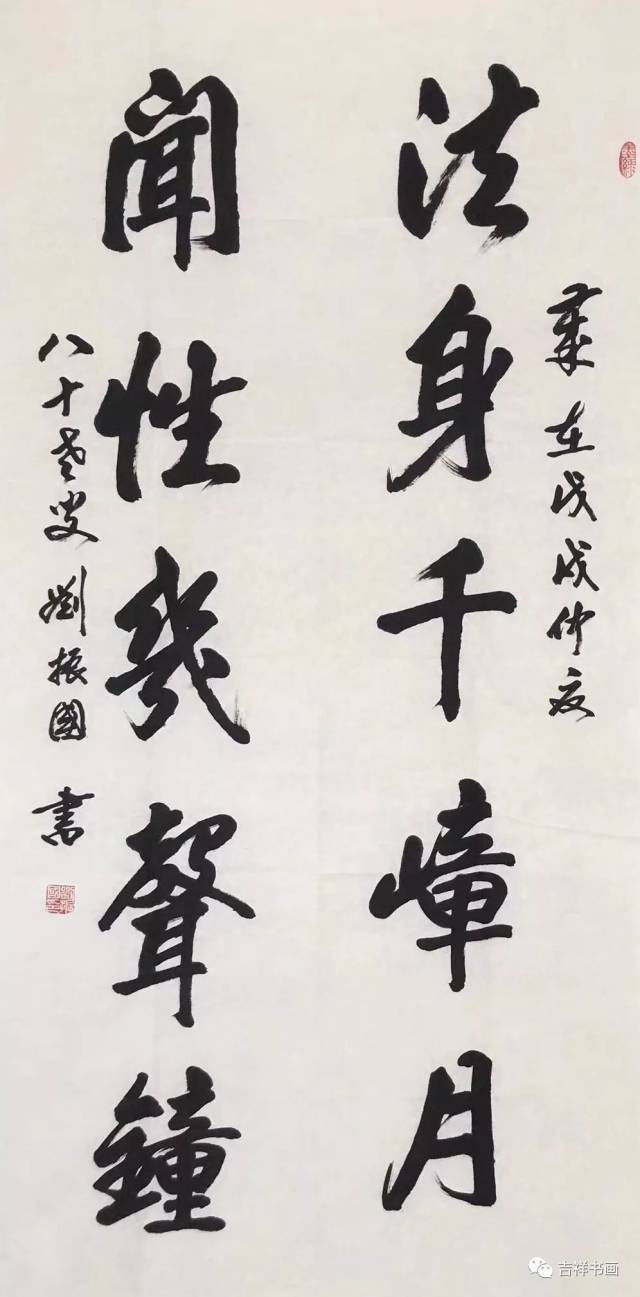 歲在戊戌仲夏
法身千嶂月
聞性幾聲鐘
八十老叟劉振國書
吉祥书画